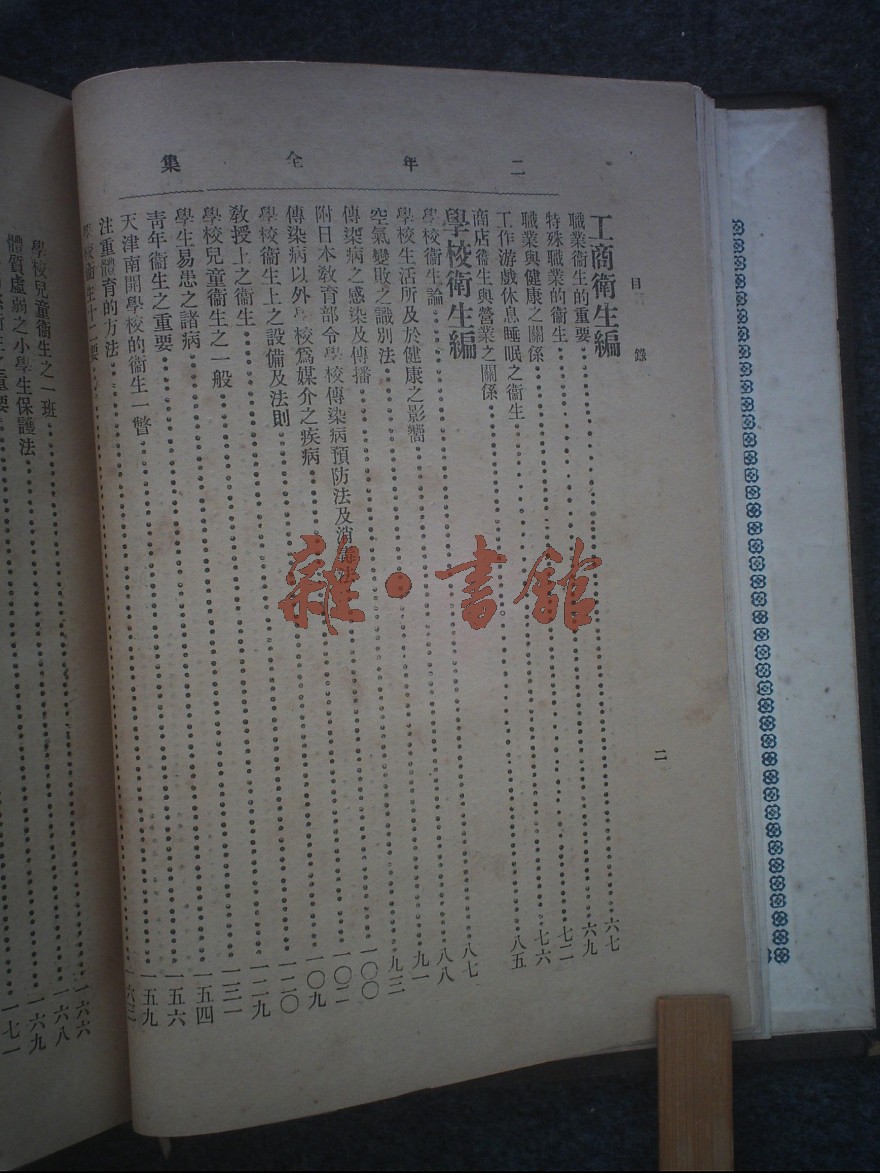 二年全集
目錄
二
工商衛生編
職業衛生的重要 六七
特殊職業的衛生 六九
職業與健康之關係 七二
工作游戲休息睡眠之衛生 七六
商店衛生與營業之關係 八五
學校衛生編
學校衛生論 八七
學校生活所及於健康之影響 八八
空氣變敗之識別法 九一
傳染病之感染及傳播 九三
附日本教育部令學校傳染病預防法及消毒法 一〇〇
傳染病以外學校爲媒介之疾病 一〇二
學校衞生上之設備及法則 一〇九
敎授上之衞生 一二〇
學校兒童衞生之一般 一二九
學生易患之諸病 一三一
靑年衞生之重要 一五四
天津南開學校的衞生一瞥 一五六
注重體育的方法 一五九
學校衞生十二要 一六三
學校兒童衞生之一班 一六六
體質虛弱之小學生保護法 一六八
一六九
一七一
雜·書館